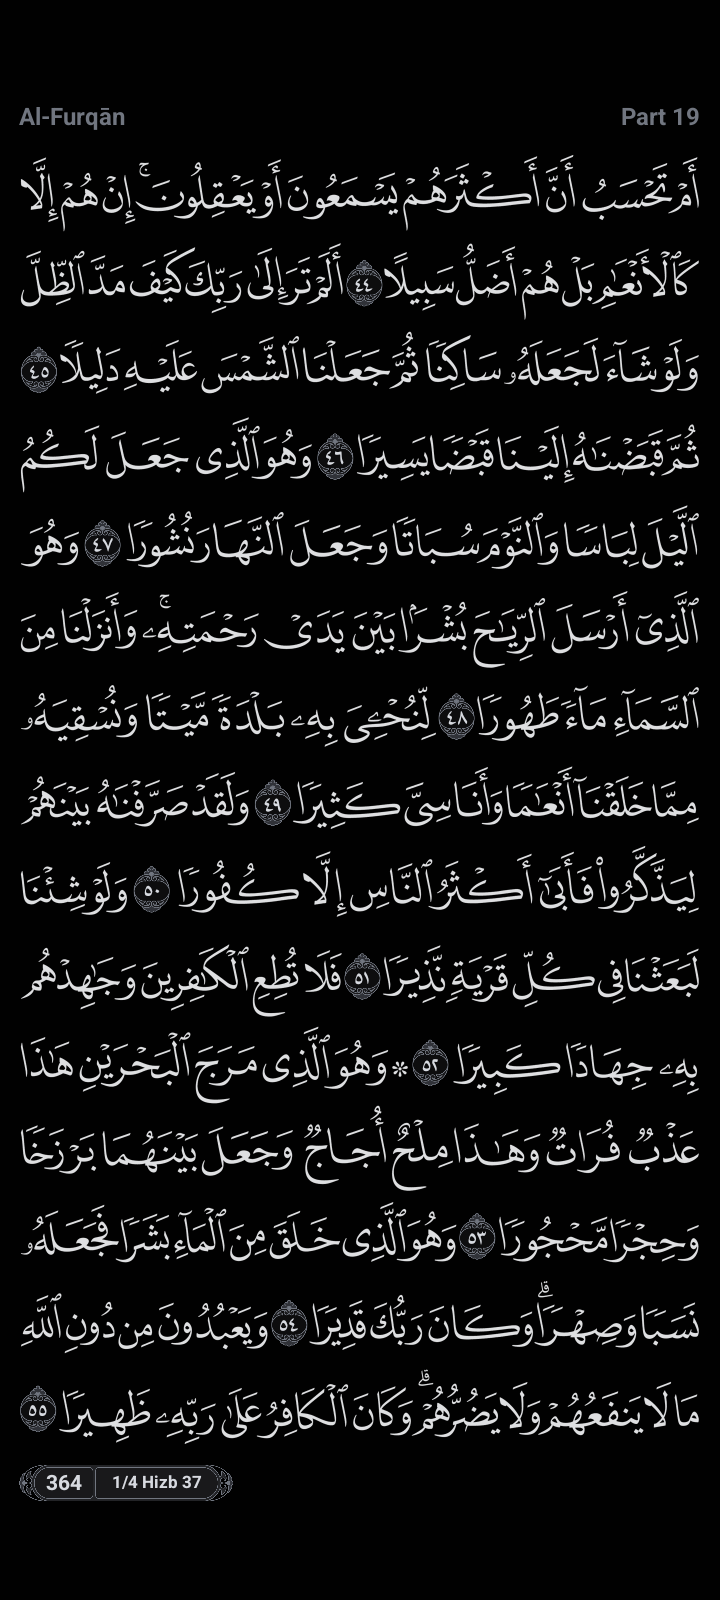 Al-Furqān Part 19
أَمْ تَحْسَبُ أَنَّ أَكْثَرَهُمْ يَسْمَعُونَ أَوْ يَعْقِلُونَۚ إِنْ هُمْ إِلَّا
كَٱلْأَنْعَٰمِ بَلْ هُمْ أَضَلُّ سَبِيلًا ٤٤ أَلَمْ تَرَ إِلَىٰ رَبِّكَ كَيْفَ مَدَّ ٱلظِّلَّ
وَلَوْ شَآءَ لَجَعَلَهُۥ سَاكِنًا ثُمَّ جَعَلْنَا ٱلشَّمْسَ عَلَيْهِ دَلِيلًا ٤٥
ثُمَّ قَبَضْنَٰهُ إِلَيْنَا قَبْضًا يَسِيرًا ٤٦ وَهُوَ ٱلَّذِى جَعَلَ لَكُمُ
ٱلَّيْلَ لِبَاسًا وَٱلنَّوْمَ سُبَاتًا وَجَعَلَ ٱلنَّهَارَ نُشُورًا ٤٧ وَهُوَ
ٱلَّذِىٓ أَرْسَلَ ٱلرِّيَٰحَ بُشْرًۢا بَيْنَ يَدَىْ رَحْمَتِهِۦۚ وَأَنزَلْنَا مِنَ
ٱلسَّمَآءِ مَآءً طَهُورًا ٤٨ لِّنُحْۦِىَ بِهِۦ بَلْدَةً مَّيْتًا وَنُسْقِيَهُۥ
مِمَّا خَلَقْنَآ أَنْعَٰمًا وَأَنَاسِىَّ كَثِيرًا ٤٩ وَلَقَدْ صَرَّفْنَٰهُ بَيْنَهُمْ
لِيَذَّكَّرُوا۟ فَأَبَىٰٓ أَكْثَرُ ٱلنَّاسِ إِلَّا كُفُورًا ٥٠ وَلَوْ شِئْنَا
لَبَعَثْنَا فِى كُلِّ قَرْيَةٍ نَّذِيرًا ٥١ فَلَا تُطِعِ ٱلْكَٰفِرِينَ وَجَٰهِدْهُم
بِهِۦ جِهَادًا كَبِيرًا ٥٢ * وَهُوَ ٱلَّذِى مَرَجَ ٱلْبَحْرَيْنِ هَٰذَا
عَذْبٌ فُرَاتٌ وَهَٰذَا مِلْحٌ أُجَاجٌ وَجَعَلَ بَيْنَهُمَا بَرْزَخًا
وَحِجْرًا مَّحْجُورًا ٥٣ وَهُوَ ٱلَّذِى خَلَقَ مِنَ ٱلْمَآءِ بَشَرًا فَجَعَلَهُۥ
نَسَبًا وَصِهْرًاۗ وَكَانَ رَبُّكَ قَدِيرًا ٥٤ وَيَعْبُدُونَ مِن دُونِ ٱللَّهِ
مَا لَا يَنفَعُهُمْ وَلَا يَضُرُّهُمْۗ وَكَانَ ٱلْكَافِرُ عَلَىٰ رَبِّهِۦ ظَهِيرًا ٥٥
364 1/4 Hizb 37